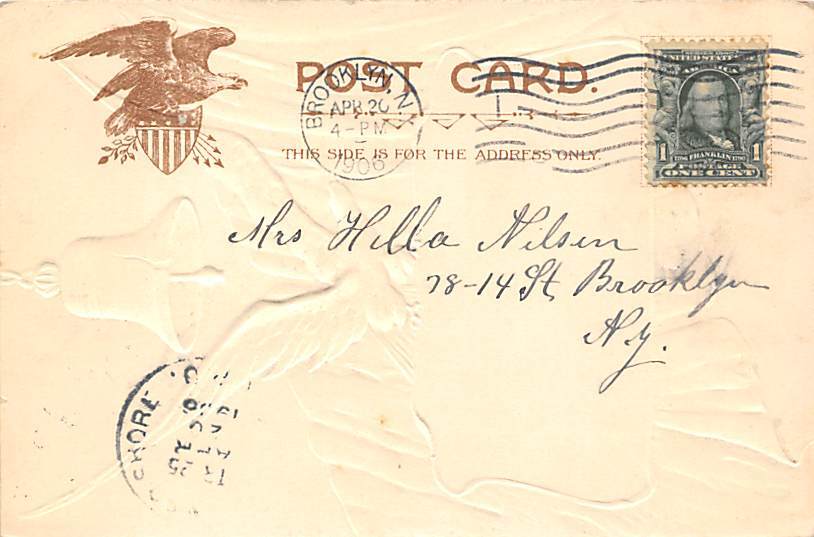 POST CARD.
BROOKLYN, N
APR 20
4-PM
1906
THIS SIDE IS FOR THE ADDRESS ONLY.
UNITED STATES OF AMERICA
1 1706 FRANKLIN 1790 1
POSTAGE
ONE CENT
Mrs Hilla Nilsen
78-14 St, Brooklyn
N.y.